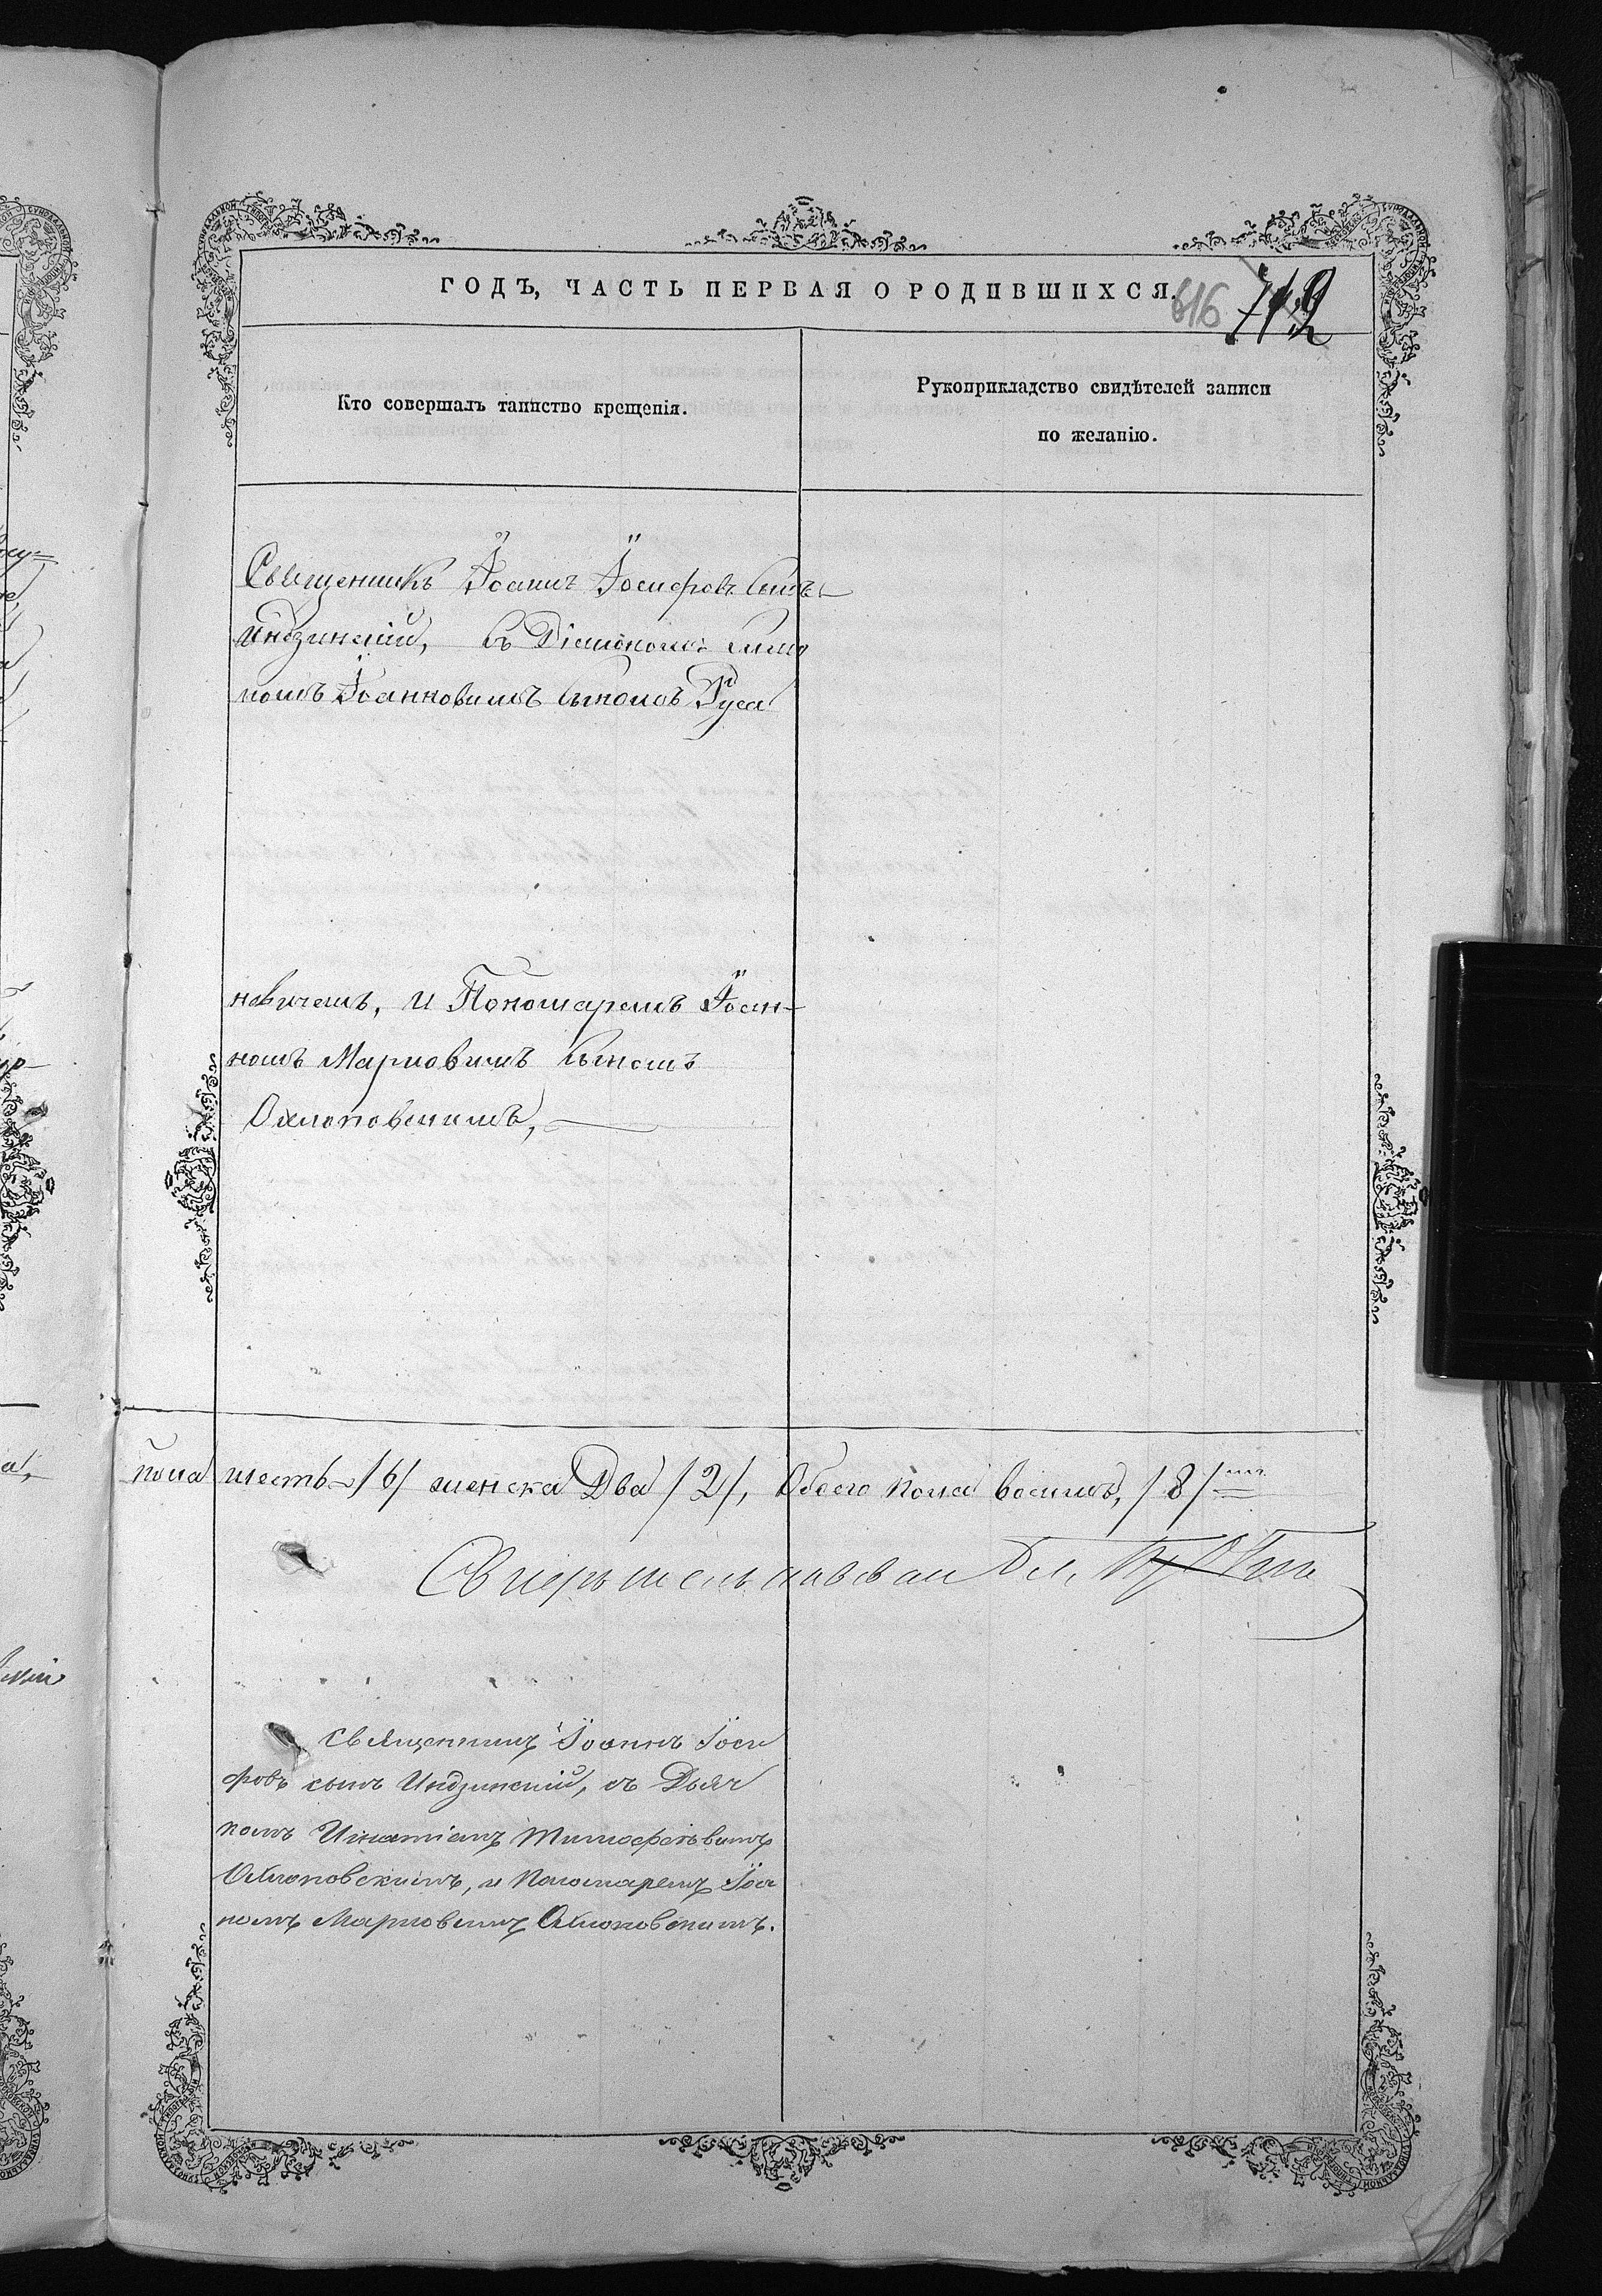 ГОДЪ, ЧАСТЬ ПЕРВАЯ О РОДИВШИХСЯ.
616 712
Кто совершалъ таинство крещенія.
Рукоприкладство свидѣтелей записи
по желанію.
Священникъ Іоаннъ Іосифовъ сынъ
Индзинскій, съ Діакономъ
номъ Іоанновымъ сыномъ Руса
новичемъ, и Пономаремъ Іоан-
номъ Марковымъ сыномъ
Охлоповскимъ,
пола шесть /6/ женска Два /2/, Обоего пола восимъ, /8/
Священникъ Іоаннъ Іоси
фовъ сынъ Индзинскій, съ Дьяч
комъ Игнатіемъ Тимофеевымъ
Охлоповскимъ, и Пономаремъ Іоа
номъ Марковымъ Охлоповскимъ.